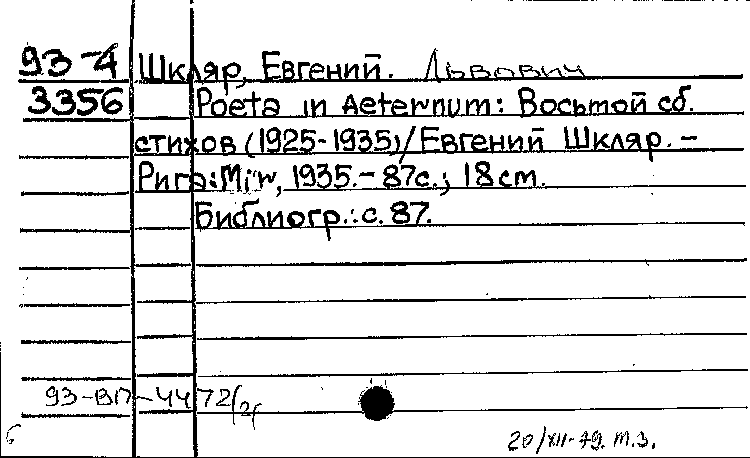 93-4 Шкляр, Евгений. Львович
3356 Poeta in Aeternum: Восьмой сб.
стихов (1925-1935)/Евгений Шкляр. –
Рига: Mir, 1935. – 87с.; 18см.
Библиогр.: с. 87.
93-ВП-4472/2(
20/XII-79. т.з.